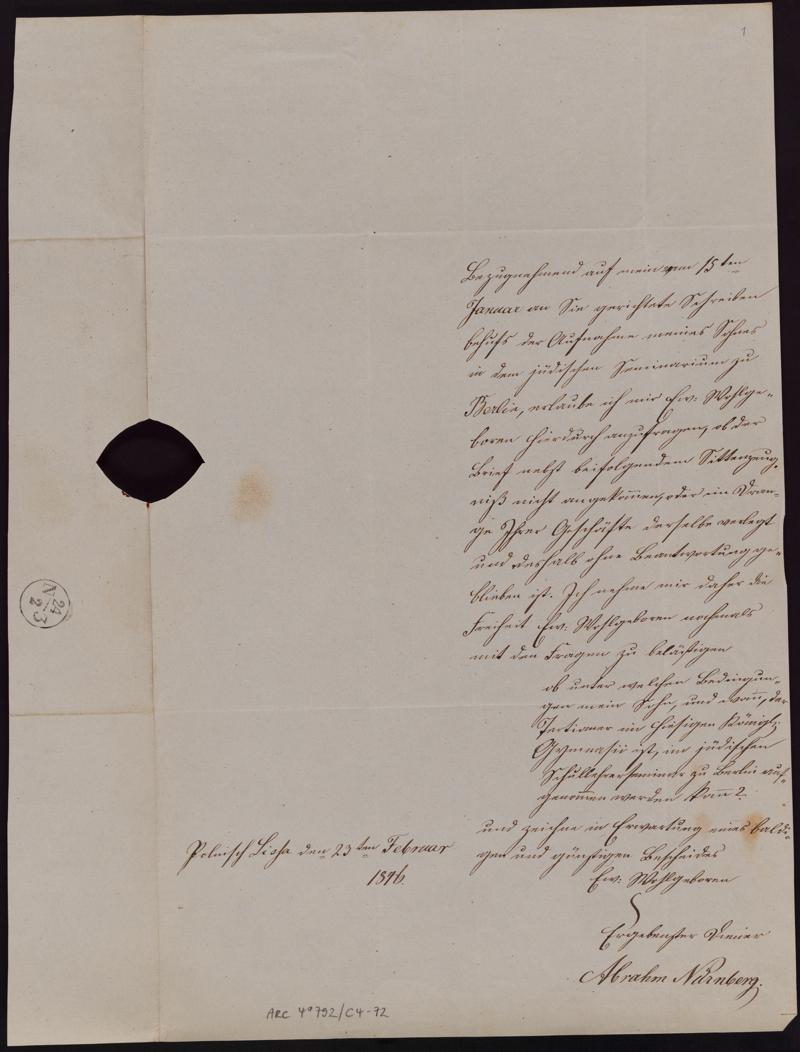 1
Bezugnehmend auf mein vom 15ten
Januar an Sie gerichtete Schreiben
behufs der Aufnahme meines Sohnes
in dem jüdischen Seminarium zu
Berlin, erlaube ich mir Ew: Wohlge-
boren hierdurch anzufragen, ob der
Brief nebst beifolgendem Sittenzeug-
niß nicht angekommen, oder im Dran-
ge Ihrer Geschäfte derselbe verlegt
und deshalb ohne Beantwortung ge-
blieben ist. Ich nehme mir daher die
Freiheit Ew: Wohlgeboren nochmals
mit den Fragen zu belästigen
ob unter welchen Bedingun-
gen mein Sohn, und wann, der
Tertianer im hiesigen Königl:
Gymnasii ist, im jüdischen
Schullehrerseminar zu Berlin auf-
genommen werden kann?
und zeichne in Erwartung eines baldi-
gen und günstigen Bescheides
Ew: Wohlgeboren
Ergebenster Diener
Abrahm Nürnberg.
Polnisch Lissa den 23ten Februar
1846.
N
24/2 3
ARC 4º 792/C4-72